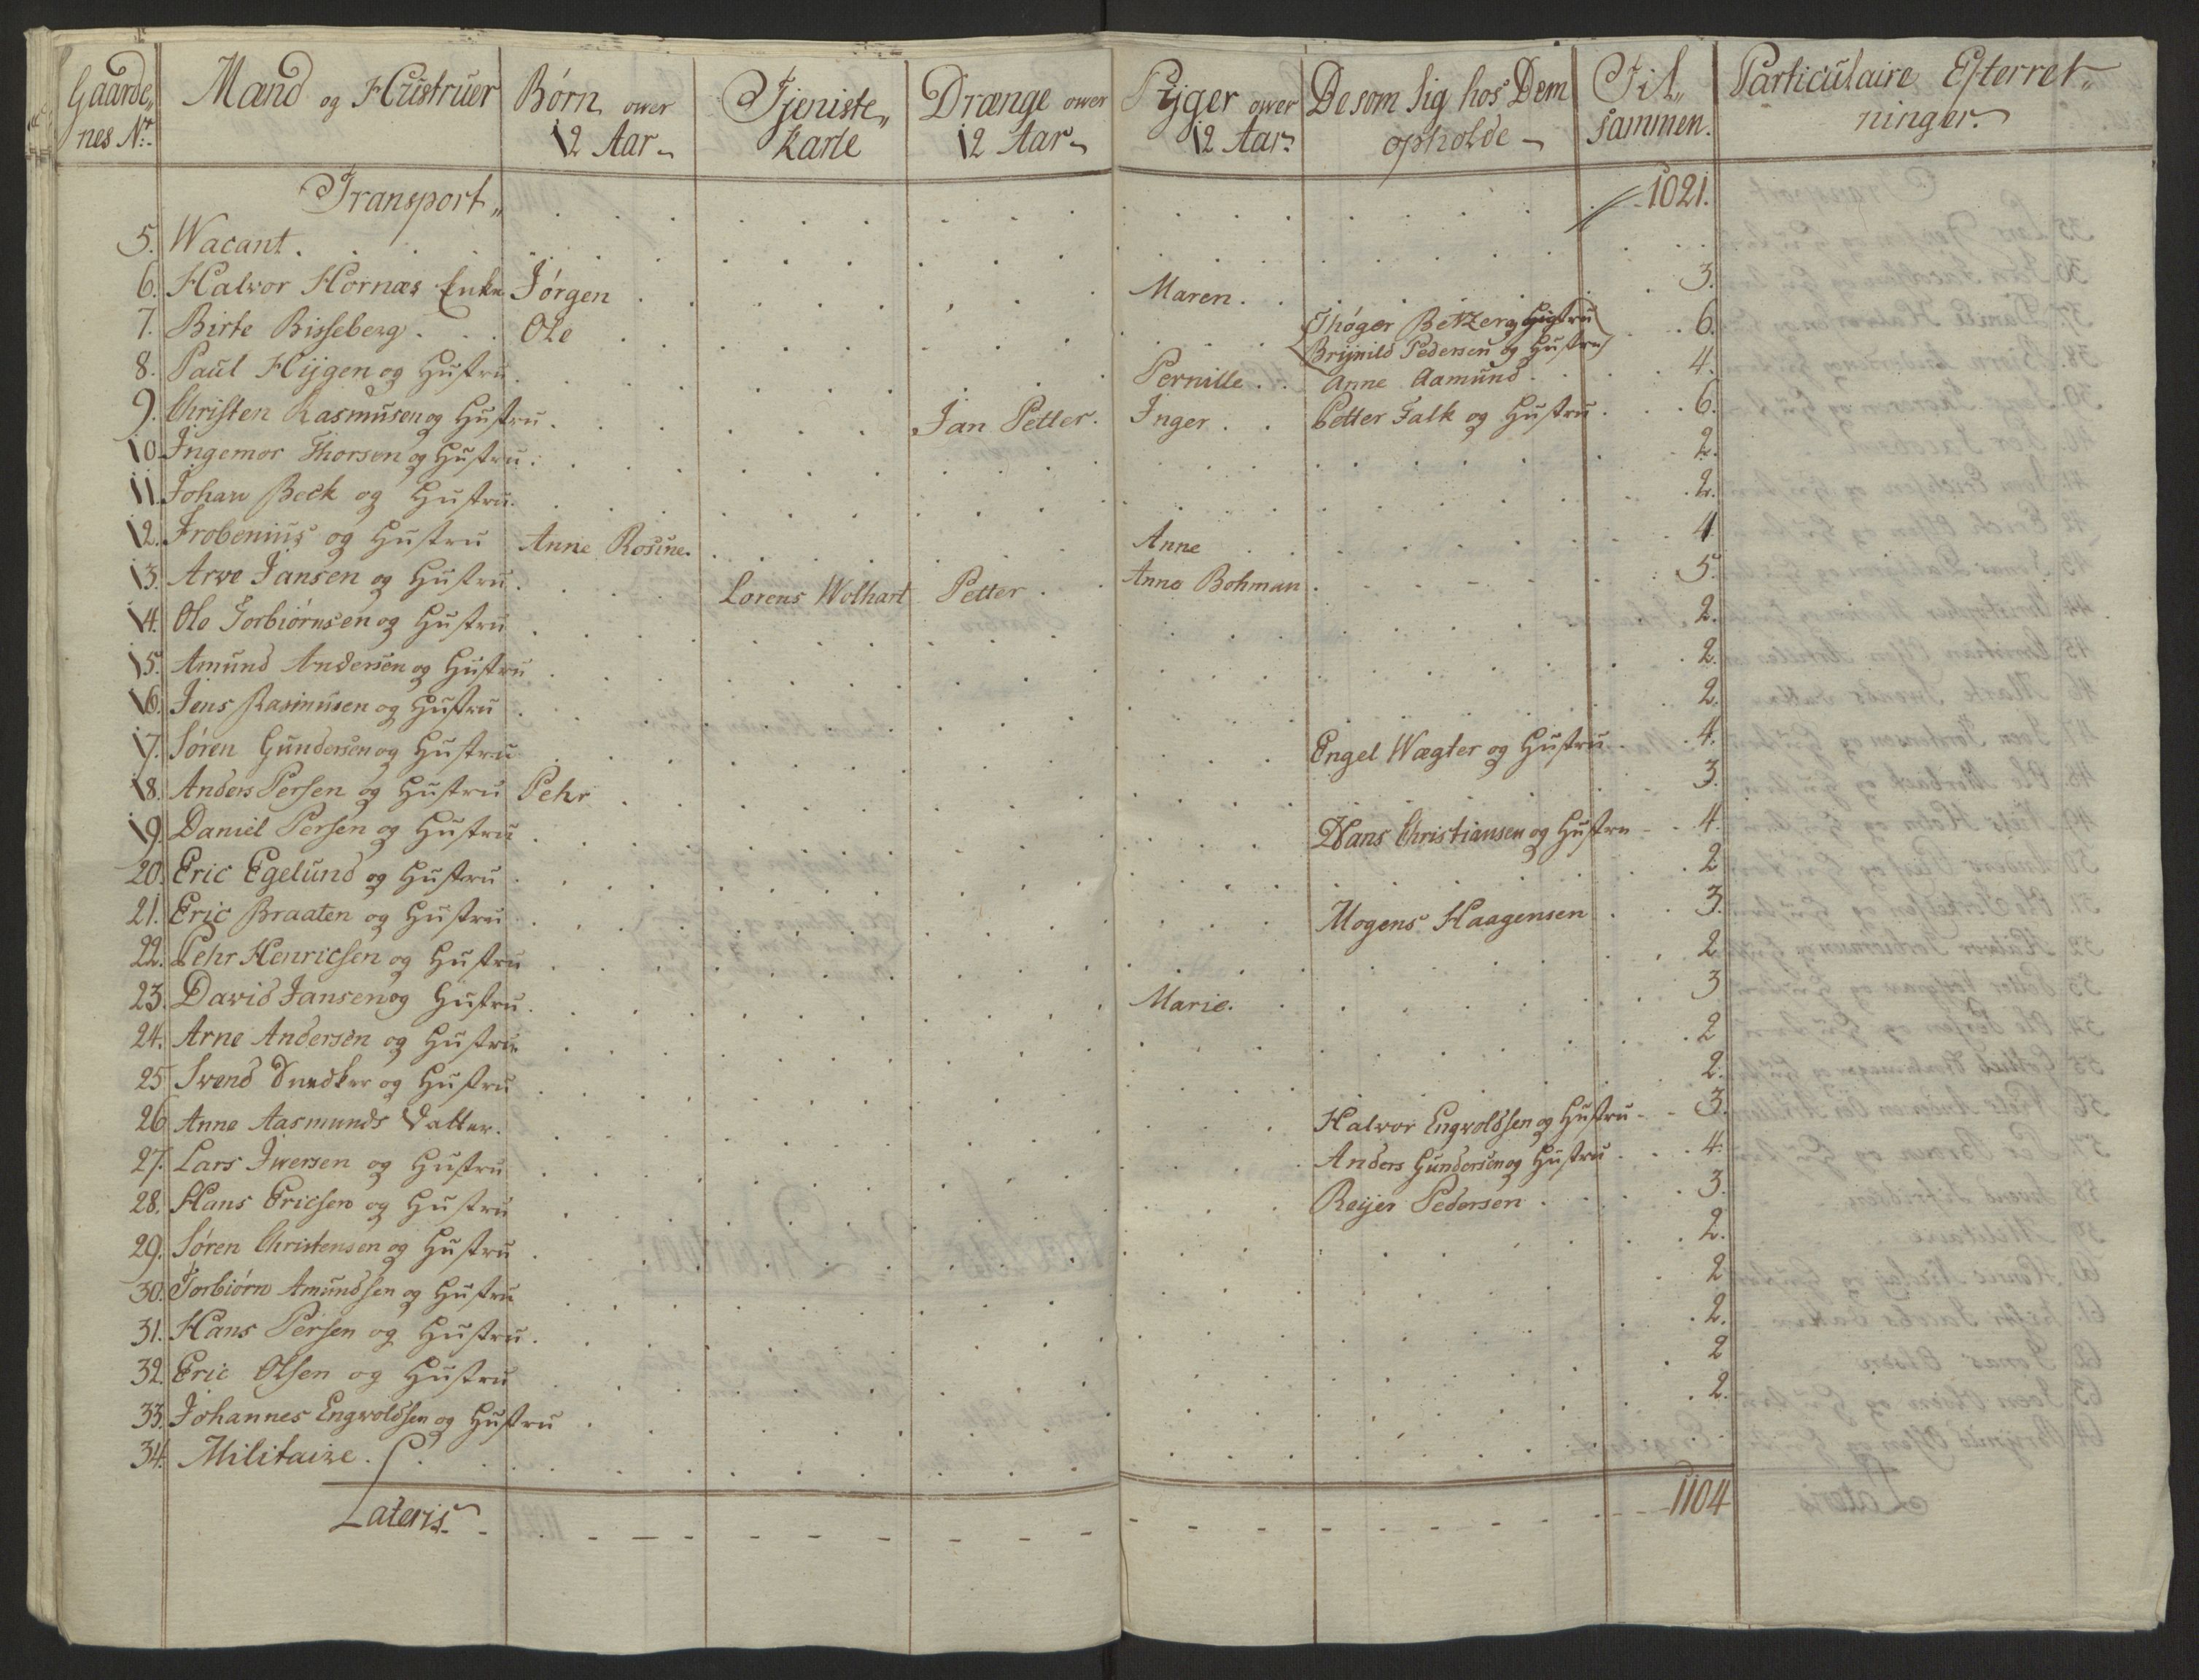 Gaarde„ nes No. | Mænd og Hustruer | Børn ower 12 Aar | Tjeniste„ Karle | Drænge ower 12 Aar | Pijger ower 12 Aar | De som sig hos Dem opholde | Til„ sammen. | Particulaire Efterret„ ninger.
Transport„ 1021.
5. Wacant.
6. Halvor Hornæs Enke Jørgen Maren. 3.
7. Birte Bisseberg. Ole Thøger Betzer og Hustru Brijnild Pedersen og Hustru 6.
8. Paul Hijgen og Hustru Pernille. Anne Aamund. 4.
9. Christen Rasmusen og Hustru. Jan Petter. Inger. Petter Falk og Hustru. 6.
10. Ingemor Thorsen og Hustru. 2.
11. Johan Beck og Hustru. 2.
12. Frobenius og Hustru Anne Rosine. Anne 4
13. Arve Jansen og Hustru. Lorens Wolhart Petter. Anne Bohman. 5.
14. Ole Torbiørnsen og Hustru 2.
15. Amund Andersen og Hustru 2.
16. Jens Rasmusen og Hustru 2.
17. Søren Gundersen og Hustru Engel Wægter og Hustru 4.
18. Anders Persen og Hustru Pehr 3.
19. Daniel Persen og Hustru Hans Christiansen og Hustru 4.
20. Eric Egelund og Hustru 2
21. Eric Braaten og Hustru Mogens Haagensen 3.
22. Pehr Henricsen og Hustru 2
23. David Jansen og Hustru. Marie. 3
24. Arne Andersen og Hustru 2
25 Svend Snedker og Hustru 2.
26 Anne Aasmunds Datter. Halvor Engvoldsen og Hustru 3.
27. Lars Iversen og Hustru Anders Gundersen og Hustru 4.
28. Hans Ericsen og Hustru Reijer Pedersen 3.
29. Søren Christensen og Hustru 2.
30. Torbiørn Amundsen og Hustru 2
31. Hans Persen og Hustru. 2.
32. Eric Olsen og Hustru 2
33. Johannes Engvoldsen og Hustru 2.
34. Militaire.
Lateris. 1104